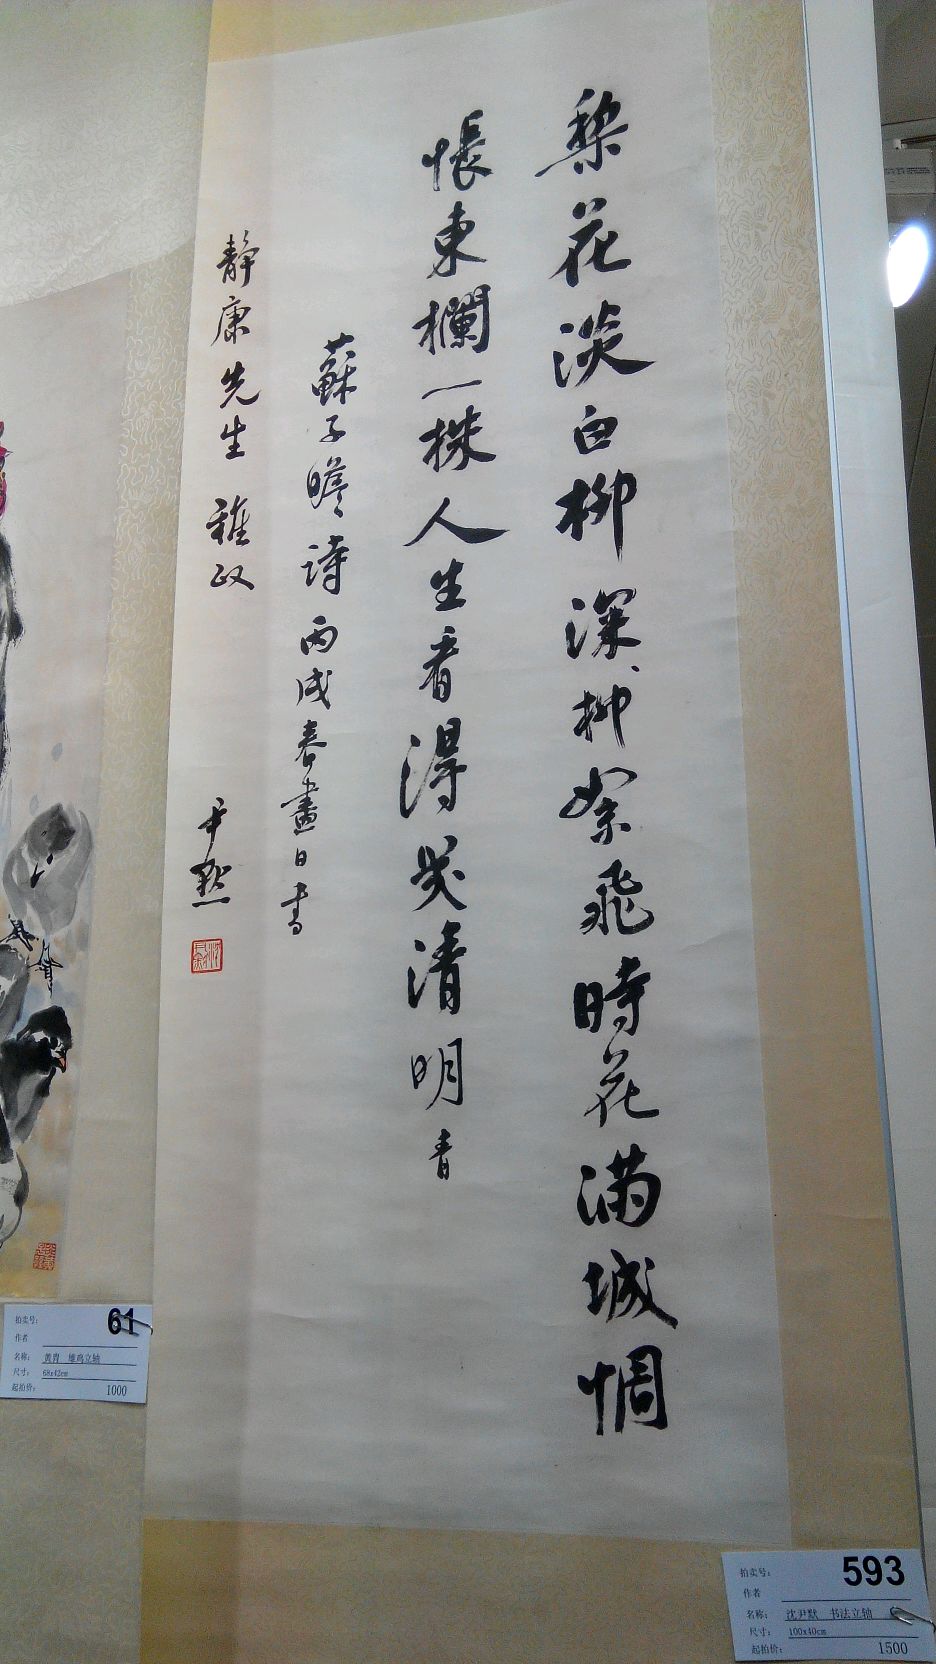 梨花淡白柳深、柳絮飛時花滿城惆
悵東欄一株人生看得幾清明 青
蘇子瞻詩 丙戌春盡日書
靜康先生 雅政 尹默
拍卖号: 61
作者
名称: 黄胄 雄鸡立轴
尺寸: 68x42cm
起拍价: 1000
拍卖号: 593
作者
名称: 沈尹默 书法立轴
尺寸: 100x40cm
起拍价: 1500